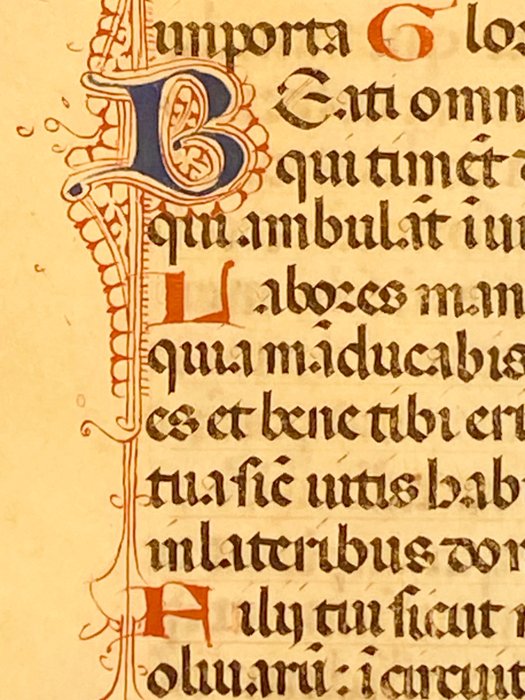 inporta Glor
BEati omn
qui timēt d
qui ambulāt i ui
Labores man
quia māducabis
es et bene tibi eri
tua sic̄ uitis hab
in lateribus dom
Filij tui sicut n
oliuarū : i circuit